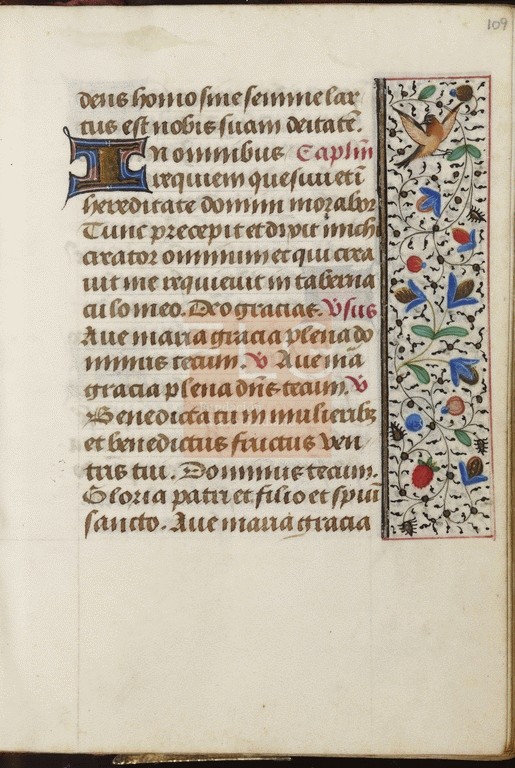 109
dens homo sine semine lar
tus est nobis suam deitatē.
In omnibus Capl'm
requiem quesiui et ī
hereditate domini morabor
Tunc precepit et dixit michi
creator omnium et qui crea
uit me requieuit in taberna
culo meo. Deo gracias. V̄sus
Aue maria gracia plena do
minus tecum. V Aue mā
gracia plena dn̄s tecum. V
Benedicta tu in mulierib3
et benedictus fructus ven
tris tui. Dominus tecum.
Gloria patri et filio et spūi
sancto. Aue maria gracia